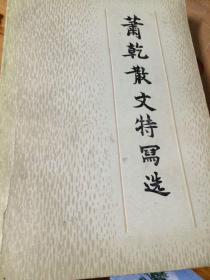 萧乾散文特写选